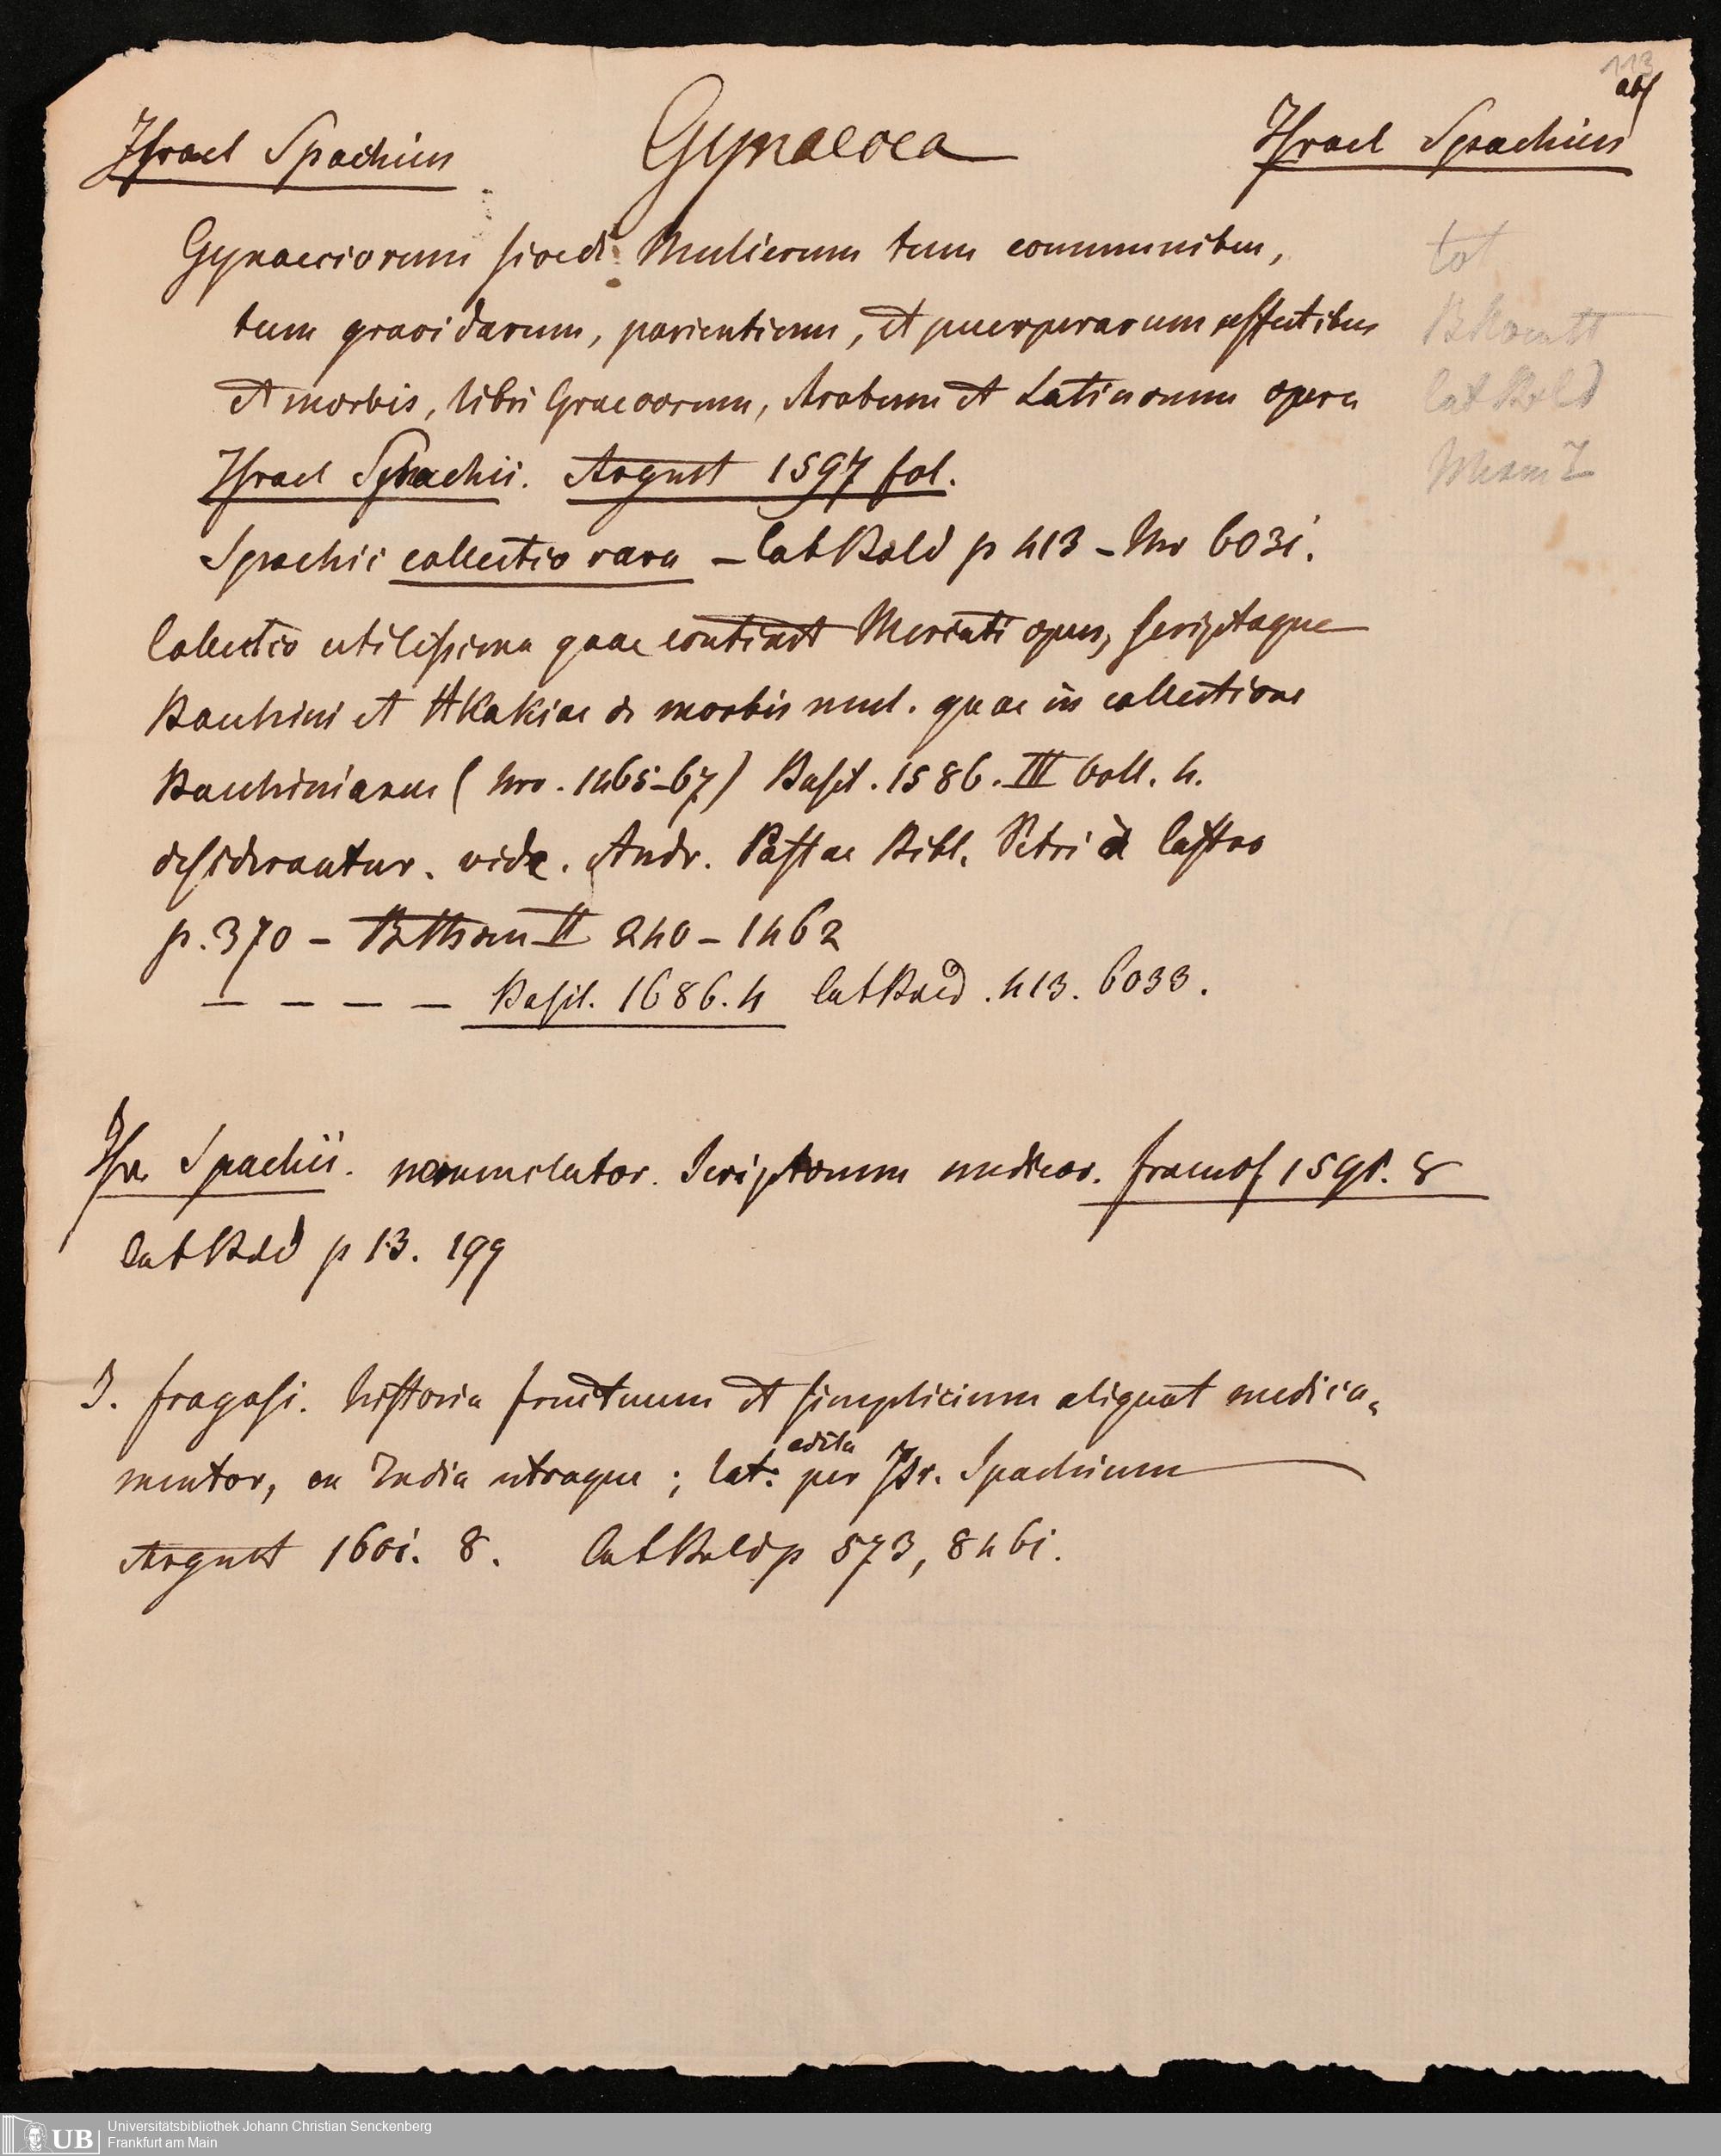 113
abs
Israel Spachius Gynaecea Israel Spachius
Gynaeciorum sive di Mulierum tum communibus, tot
tum gravidarum, parientium, et puerperarum affectibus
et morbis, libri Graecorum, Arabum et Latinorum opera Cat Bald
Israel Spachii. Argent 1597 fol.
Spachii collectio rara – Cat Bald p 413 – Nr 6031.
Collectio utilissima quae continet Mercati opus, scriptaque
Bauhini et Akakiae de morbis mul. quae in collectione
Bauhiniana (Nro. 1465–67) Basil. 1586. III Voll. 4.
desiderantur. vide. Andr. Pastae Bibl. Petri a Castro
p. 370 – II 240 – 1462
– – – – Basil. 1686. 4 Cat Bald. 413. 6033.
Isr. Spachii. nomenclator. Scriptorum medicor. Francof 1591. 8
Cat Bald p 13. 199
J. Fragosi. historia fructuum et simplicium aliquot medica-
mentor, ex India utraque; lat. edita per Isr. Spachium
Argent 1601. 8. Cat Bald p 573, 8461.
Universitätsbibliothek Johann Christian Senckenberg
UB Frankfurt am Main